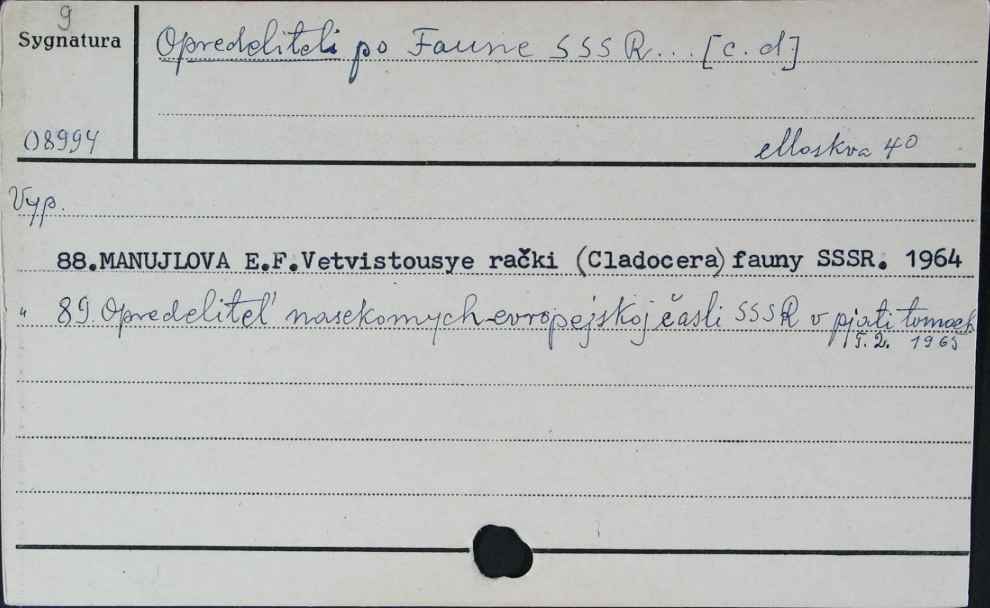 9
Sygnatura
Opredeliteli po Faune SSSR... [c.d]
08994
Moskva 40
Vyp.
88.MANUJLOVA E.F.Vetvistousye rački (Cladocera) fauny SSSR. 1964
" 89. Opredelitel' nasekomych evropejskoj časti SSSR v pjati tomach
T. 2. 1965